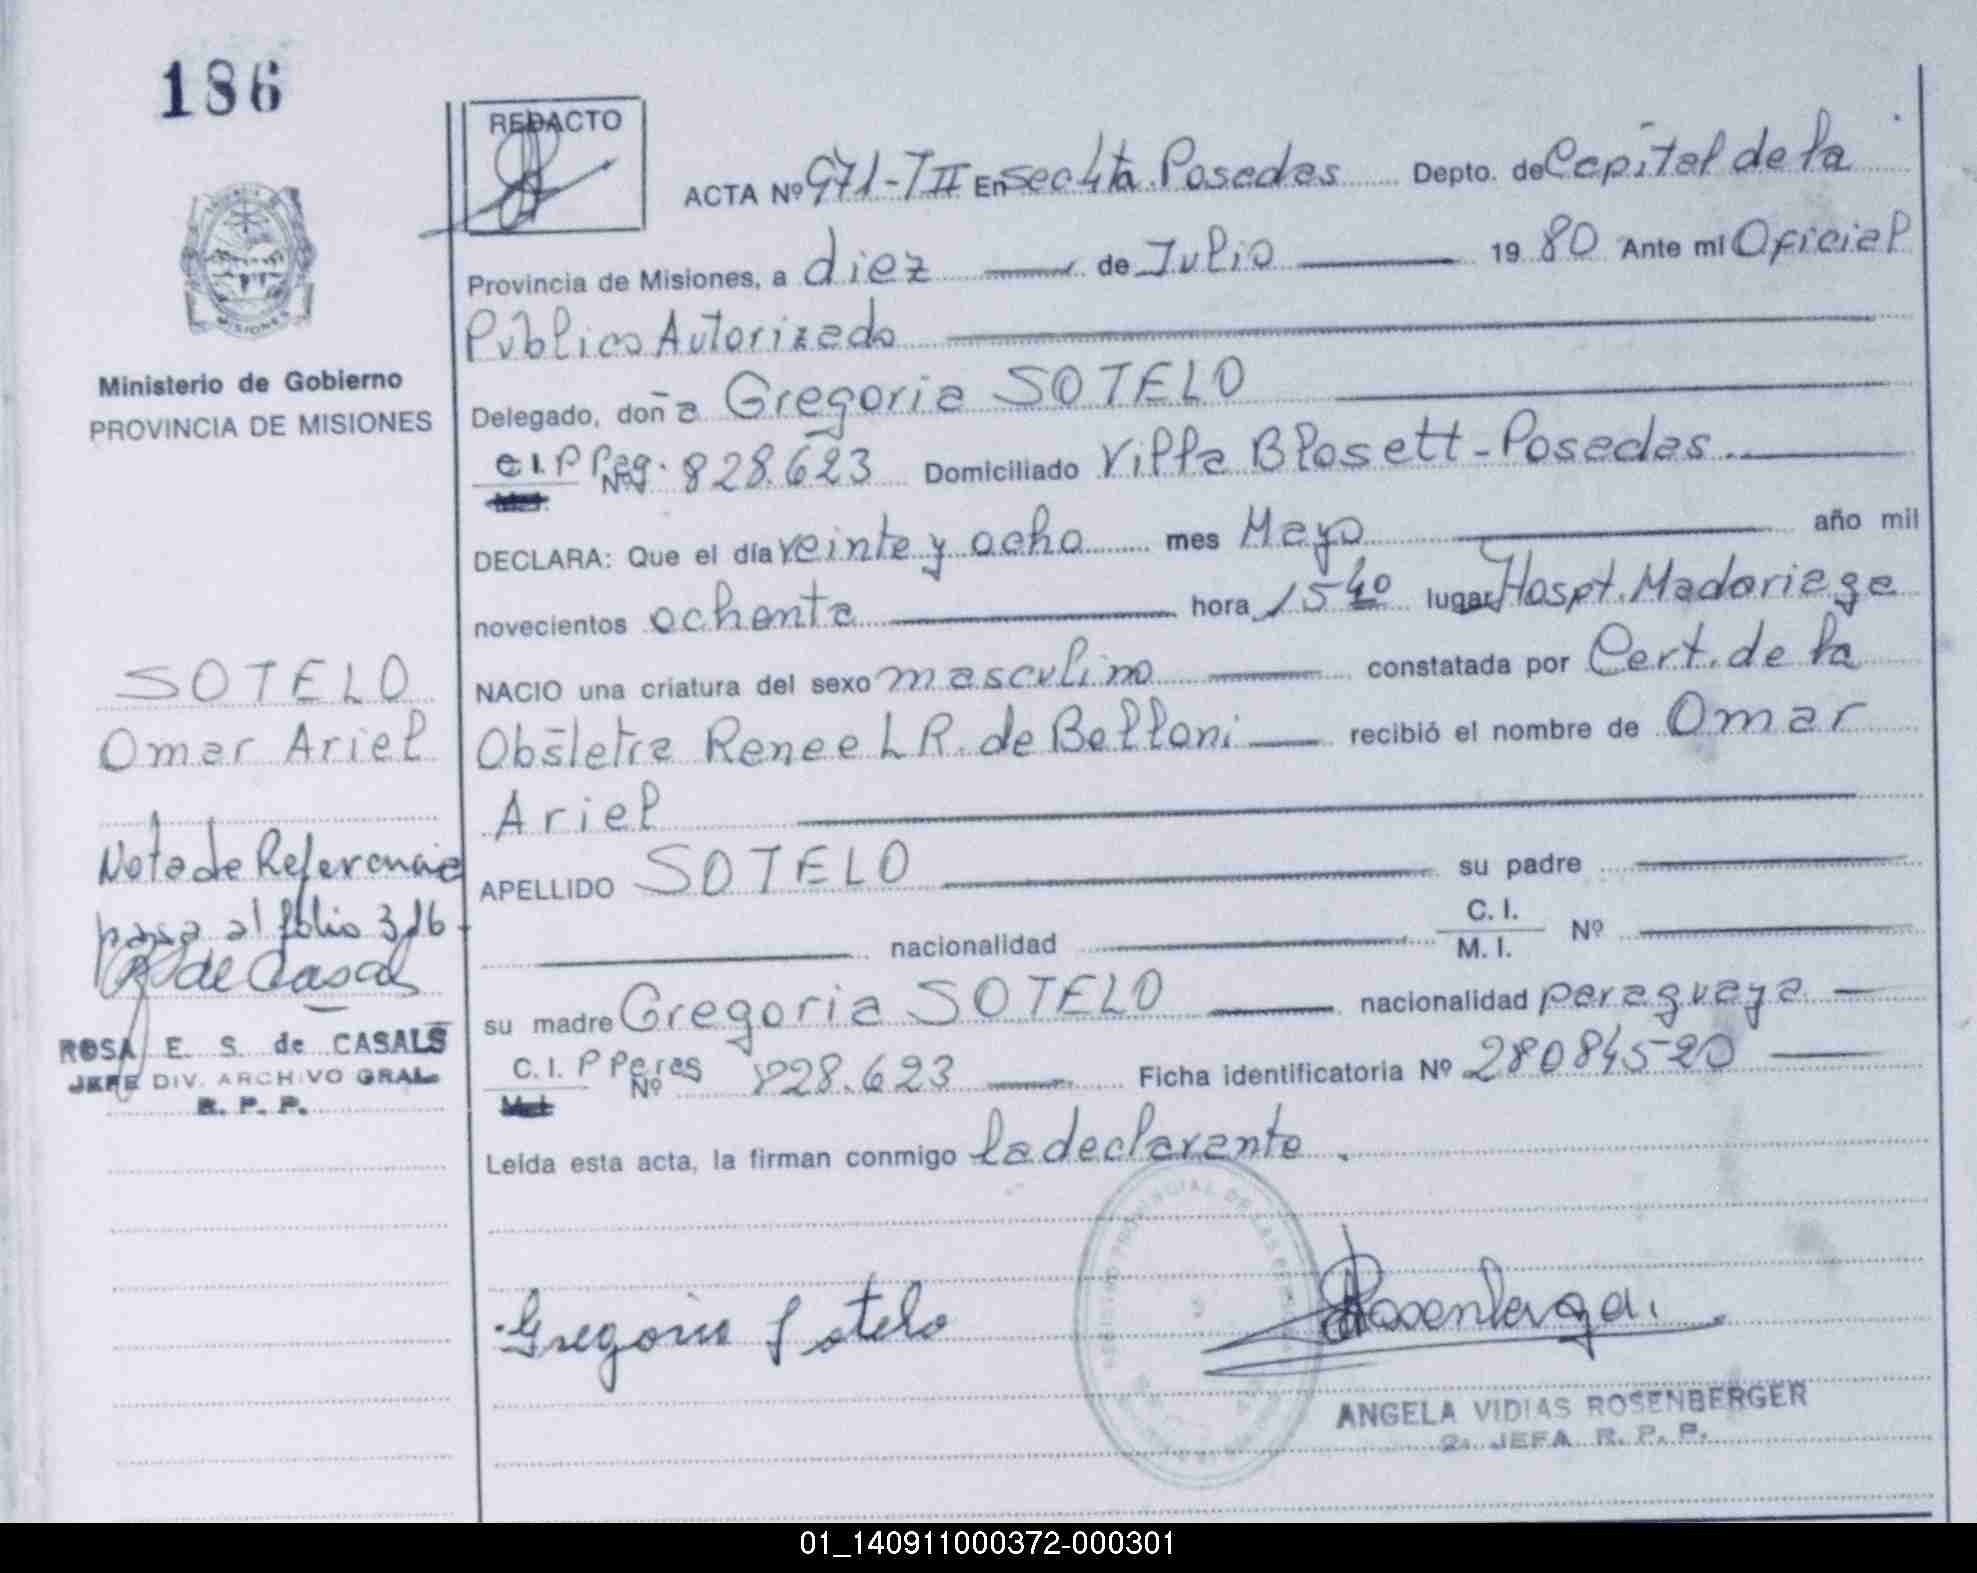 186
REDACTO
ACTA Nº 971-TII En sec 4ta. Posadas Depto. de Capital de la
Provincia de Misiones, a diez de Julio 1980 Ante mi Oficial
Público Autorizado
Delegado, doña Gregoria SOTELO
C.I. P Nº 828.623 Domiciliado Villa Blosett-Posadas.
DECLARA: Que el día veinte y ocho mes Mayo año mil
novecientos ochenta hora 15 40 lugar Hospt. Madariaga
NACIO una criatura del sexo masculino constatada por Cert. de la
Obstetra Renee L R. de Belloni recibió el nombre de Omar
Ariel
APELLIDO SOTELO su padre
nacionalidad C. I. M. I. Nº
su madre Gregoria SOTELO nacionalidad paraguaya
C. I. P Nº 828.623 Ficha identificatoria Nº 28084520
Leída esta acta, la firman conmigo la declarante.
Gregoria Sotelo
ANGELA VIDIAS ROSENBERGER
2a. JEFA R. P. P.
MISIONES
Ministerio de Gobierno
PROVINCIA DE MISIONES
SOTELO
Omar Ariel
Nota de Referencia
pasa al folio 316
de Casals
ROSA E. S. de CASALS
JEFE DIV. ARCHIVO GRAL.
R. P. P.
01_140911000372-000301